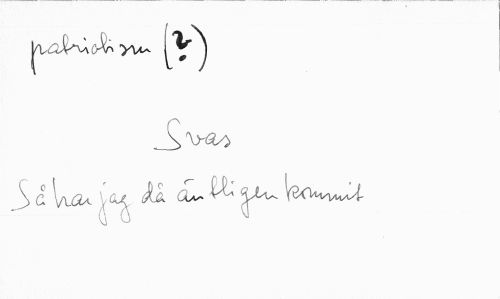 patriotism (?)
Svas
Så har jag då äntligen kommit